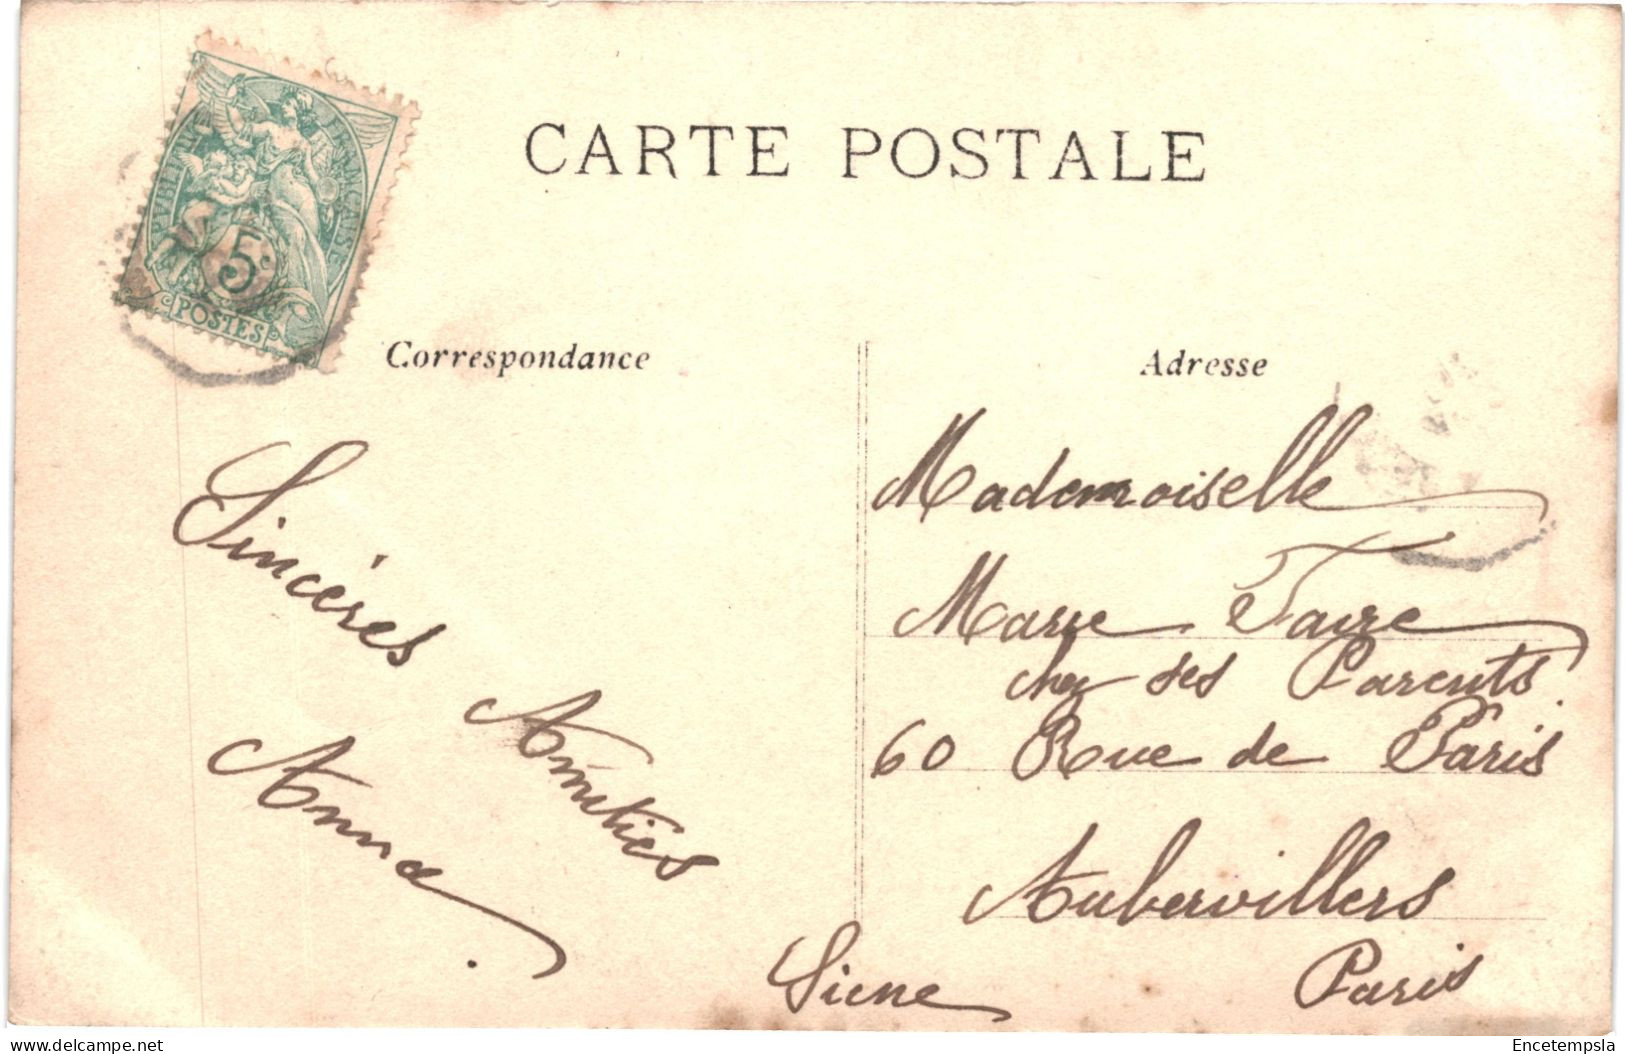 CARTE POSTALE
RÉPUBLIQUE FRANÇAISE
5c
POSTES
Correspondance
Sincères
Amitiés
Anna
Adresse
Mademoiselle
Marie Faure
chez ses Parents
60 Rue de Paris
Aubervilliers
Seine Paris
delcampe.net
Encetempsla